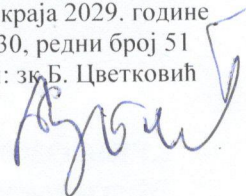 краја 2029. године
30, редни број 51
: зк Б. Цветковић